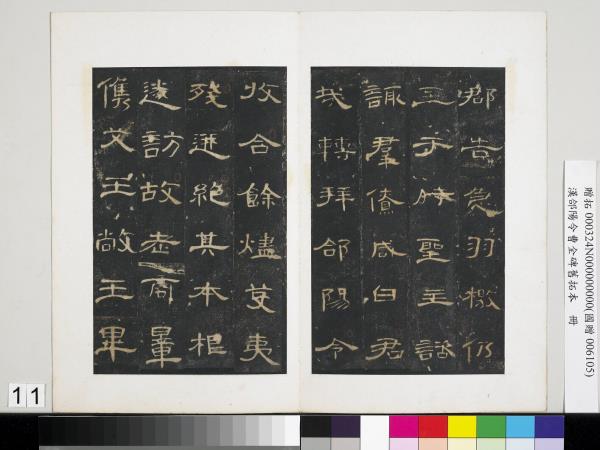 郡告急羽檄仍
至于時聖主諮
諏羣僚咸曰君
哉轉拜郃陽令
收合餘燼芟夷
殘迸絕其本根
遂訪故老商量
儁艾王敞王畢
贈拓 000324N000000000(國贈 006105)
漢郃陽令曹全碑舊拓本 冊
11